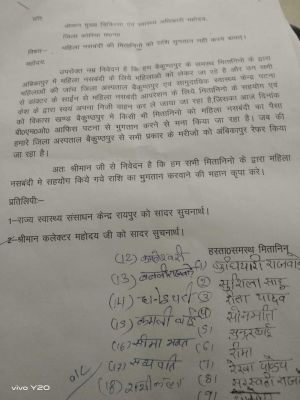 श्रीमान मुख्य चिकित्सा एवं स्वास्थ्य अधिकारी महोदय,
जिला कोरिया
विषय:- महिला नसबंदी की मितानिनो को राशि भुगतान नहीं करने बाबत्।
महोदय,
उपरोक्त नम्र निवेदन है कि हम बैकुण्ठपुर के मितानिनो के द्वारा
अंबिकापुर में महिला नसबंदी के लिये महिलाओं को लेकर जा रहे है और उन सभी
महिलाओं की जांच जिला अस्पताल बैकुण्ठपुर एवं सामुदायिक स्वास्थ्य केन्द्र पटना
से डॉक्टर के साईन से महिला नसबंदी आपरेशन के लिये मितानिनो के सहयोग एवं
के द्वारा स्वयं अपना निजी वाहन कर ले जाया जा रहा है, जिसका आज दिनांक
को विकास खण्ड बैकुण्ठपुर मे किसी भी मितानिनो को महिला नसबंदी का पैसा
बी०एम०ओ० आफिस पटना से भुगतान करने से मना किया जा रहा है। जब की
हमारे जिला अस्पताल बैकुण्ठपुर से सभी प्रकार के मरीजो को अंबिकापुर रेफर किया
जा रहा है।
अतः श्रीमान जी से निवेदन है कि हम सभी मितानिनो के द्वारा महिला
नसबंदी मे सहयोग किये गये राशि का भुगतान करवाने की महान कृपा करे।
प्रतिलिपी:-
1-राज्य स्वास्थ्य संसाधन केन्द्र रायपुर को सादर सुचनार्थ।
2-श्रीमान कलेक्टर महोदय जी को सादर सुचनार्थ।
हस्ता0समस्थ मितानिन
(12)
(13) (1)
(14) (2) सुशिला साहू
(3) गीता यादव
(15) (4) सोनमति
(5)
(16) सीमा (6) रीमा
(17) सत्यवती (7) रेखा पाण्डेय
(18) शशीकला (8) सरस्वती
(9)
vivo Y20